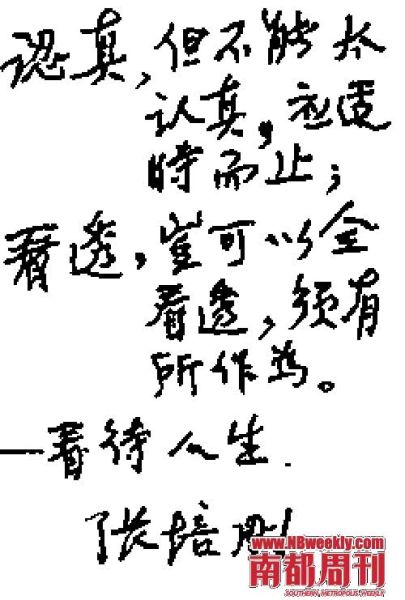 認真，但不能太
认真，应适
時而止；
看透，豈可以全
看透，须有
所作为。
—看待人生.
张培刚
www.NBweekly.com
南都周刊
SOUTHERN METROPOLIS WEEKLY